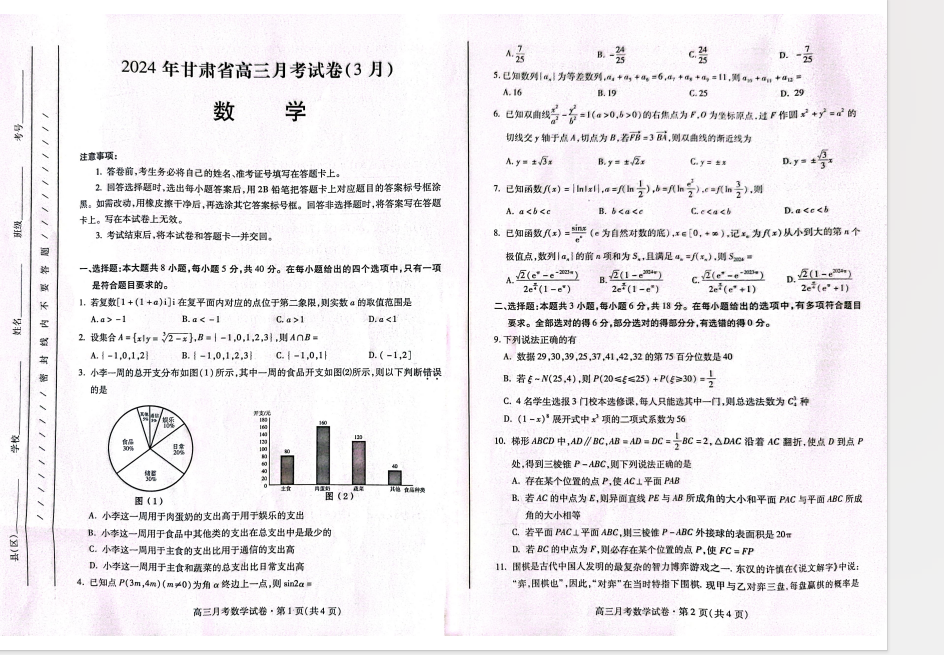 2024 年甘肃省高三月考试卷(3 月)
数 学
注意事项:
1. 答卷前,考生务必将自己的姓名、准考证号填写在答题卡上。
2. 回答选择题时,选出每小题答案后,用 2B 铅笔把答题卡上对应题目的答案标号框涂
黑。如需改动,用橡皮擦干净后,再选涂其它答案标号框。回答非选择题时,将答案写在答题
卡上。写在本试卷上无效。
3. 考试结束后,将本试卷和答题卡一并交回。
一、选择题:本大题共 8 小题,每小题 5 分,共 40 分。在每小题给出的四个选项中,只有一项
是符合题目要求的。
1. 若复数[1+(1+a)i]i 在复平面内对应的点位于第二象限,则实数 a 的取值范围是
A. a>-1 B. a<-1 C. a>1 D. a<1
2. 设集合 A={x|y=∛(2-x)},B={-1,0,1,2,3},则 A∩B=
A. {-1,0,1,2} B. {-1,0,1,2,3} C. {-1,0,1} D. (-1,2]
3. 小李一周的总开支分布如图(1)所示,其中一周的食品开支如图(2)所示,则以下判断错误
的是
娱乐 10%
日常 20%
储蓄 30%
食品 30%
图(1)
开支/元
180
160
140
120
100
80
60
40
20
0
80 160 120 40
主食 肉蛋奶 蔬菜 其他 食品种类
图(2)
A. 小李这一周用于肉蛋奶的支出高于用于娱乐的支出
B. 小李这一周用于食品中其他类的支出在总支出中是最少的
C. 小李这一周用于主食的支出比用于通信的支出高
D. 小李这一周用于主食和蔬菜的总支出比日常支出高
4. 已知点 P(3m,4m)(m≠0)为角 α 终边上一点,则 sin2α=
高三月考数学试卷·第 1 页(共 4 页)
A. 7/25 B. -24/25 C. 24/25 D. -7/25
5. 已知数列{aₙ}为等差数列,a₄+a₅+a₆=6,a₇+a₈+a₉=11,则 a₁₀+a₁₁+a₁₂=
A. 16 B. 19 C. 25 D. 29
6. 已知双曲线 x²/a²-y²/b²=1(a>0,b>0)的右焦点为 F,O 为坐标原点,过 F 作圆 x²+y²=a² 的
切线交 y 轴于点 A,切点为 B,若 FB=3 BA,则双曲线的渐近线为
A. y=±√3x B. y=±√2x C. y=±x D. y=±√3/3 x
7. 已知函数 f(x)=|ln|x||,a=f(ln 1/2),b=f(ln e²/2),c=f(ln 3/2),则
A. a<b<c B. b<a<c C. c<a<b D. a<c<b
8. 已知函数 f(x)=sinx/eˣ(e 为自然对数的底),x∈[0,+∞),记 xₙ 为 f(x)从小到大的第 n 个
极值点,数列{aₙ}的前 n 项和为 Sₙ,且满足 aₙ=f(xₙ),则 S₂₀₂₄=
二、选择题:本题共 3 小题,每小题 6 分,共 18 分。在每小题给出的选项中,有多项符合题目
要求。全部选对的得 6 分,部分选对的得部分分,有选错的得 0 分。
9. 下列说法正确的有
A. 数据 29,30,39,25,37,41,42,32 的第 75 百分位数是 40
B. 若 ξ~N(25,4),则 P(20≤ξ≤25)+P(ξ≥30)=1/2
C. 4 名学生选报 3 门校本选修课,每人只能选其中一门,则总选法数为 C₄³ 种
D. (1-x)⁸ 展开式中 x³ 项的二项式系数为 56
10. 梯形 ABCD 中,AD∥BC,AB=AD=DC=1/2BC=2,△DAC 沿着 AC 翻折,使点 D 到点 P
处,得到三棱锥 P-ABC,则下列说法正确的是
A. 存在某个位置的点 P,使 AC⊥平面 PAB
B. 若 AC 的中点为 E,则异面直线 PE 与 AB 所成角的大小和平面 PAC 与平面 ABC 所成
角的大小相等
C. 若平面 PAC⊥平面 ABC,则三棱锥 P-ABC 外接球的表面积是 20π
D. 若 BC 的中点为 F,则必存在某个位置的点 P,使 FC=FP
11. 围棋是古代中国人发明的最复杂的智力博弈游戏之一. 东汉的许慎在《说文解字》中说:
“弈,围棋也”,因此,“对弈”在当时特指下围棋. 现甲与乙对弈三盘,每盘赢棋的概率是
高三月考数学试卷·第 2 页(共 4 页)
考号
班级
姓名
学校
县(区)
密 封 线 内 不 要 答 题